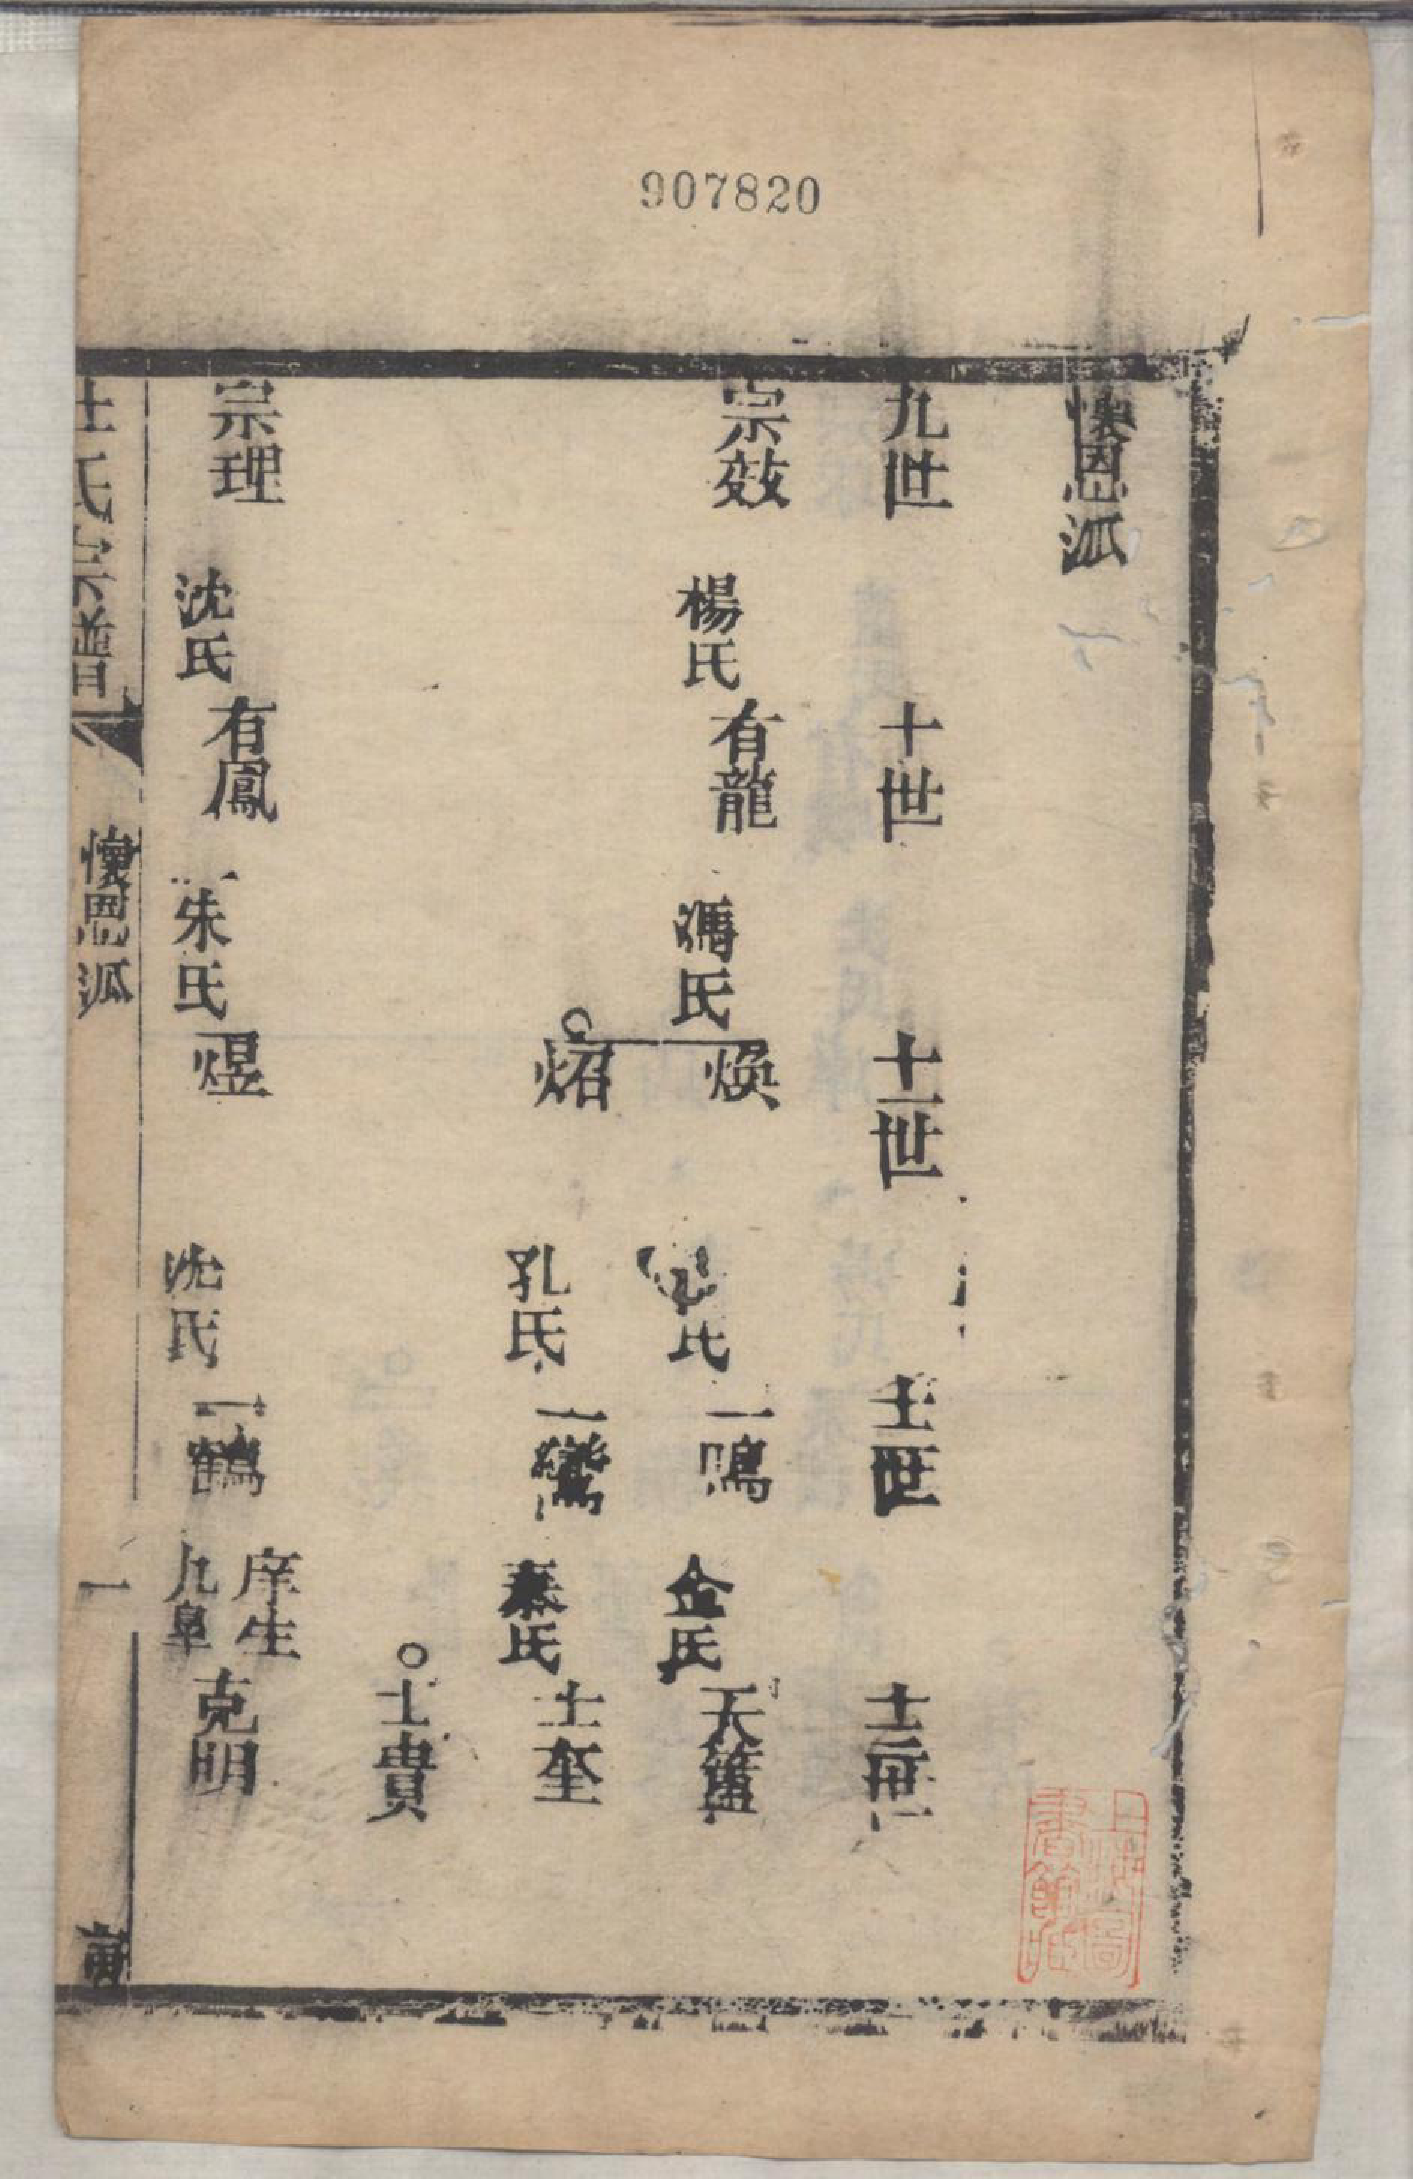 907820
懷恩派
九世 十世 十一世 十二世 十三世
宗效 楊氏 有龍 馮氏 煥 氏 一鳴 金氏 天
炤 孔氏 一鸞 秦氏 士奎
士貴
宗理 沈氏 有鳳 朱氏 煜 沈氏 一鶴 庠生 九皋 克明
杜氏宗譜 懷恩派 一
上海圖書館藏